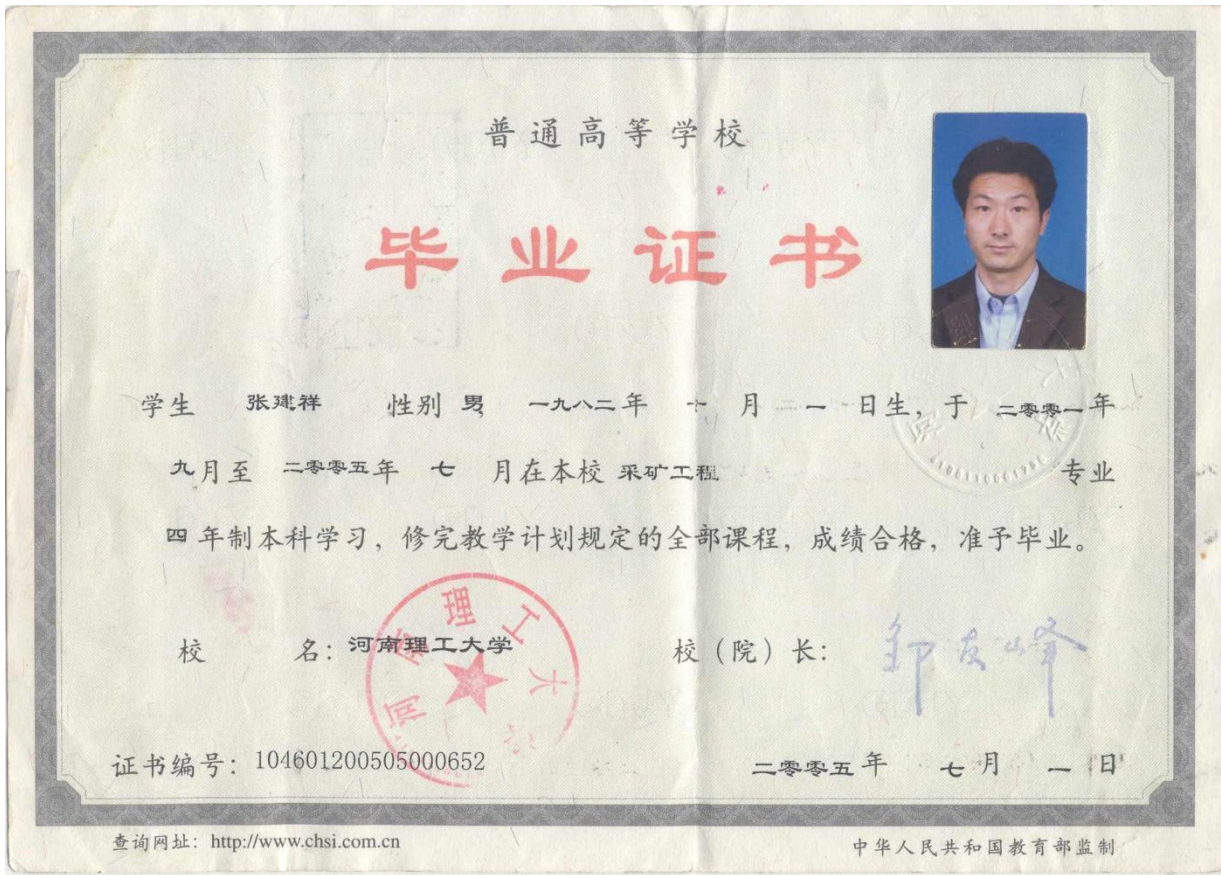 普通高等学校
毕业证书
学生 张建祥 性别 男 一九八二年 十 月 一 日生，于 二零零一年
九月至 二零零五年 七 月在本校 采矿工程 专业
四年制本科学习，修完教学计划规定的全部课程，成绩合格，准予毕业。
校 名：河南理工大学 校（院）长：邹友峰
河南理工大学
证书编号：104601200505000652 二零零五年 七月 一日
查询网址：http://www.chsi.com.cn 中华人民共和国教育部监制